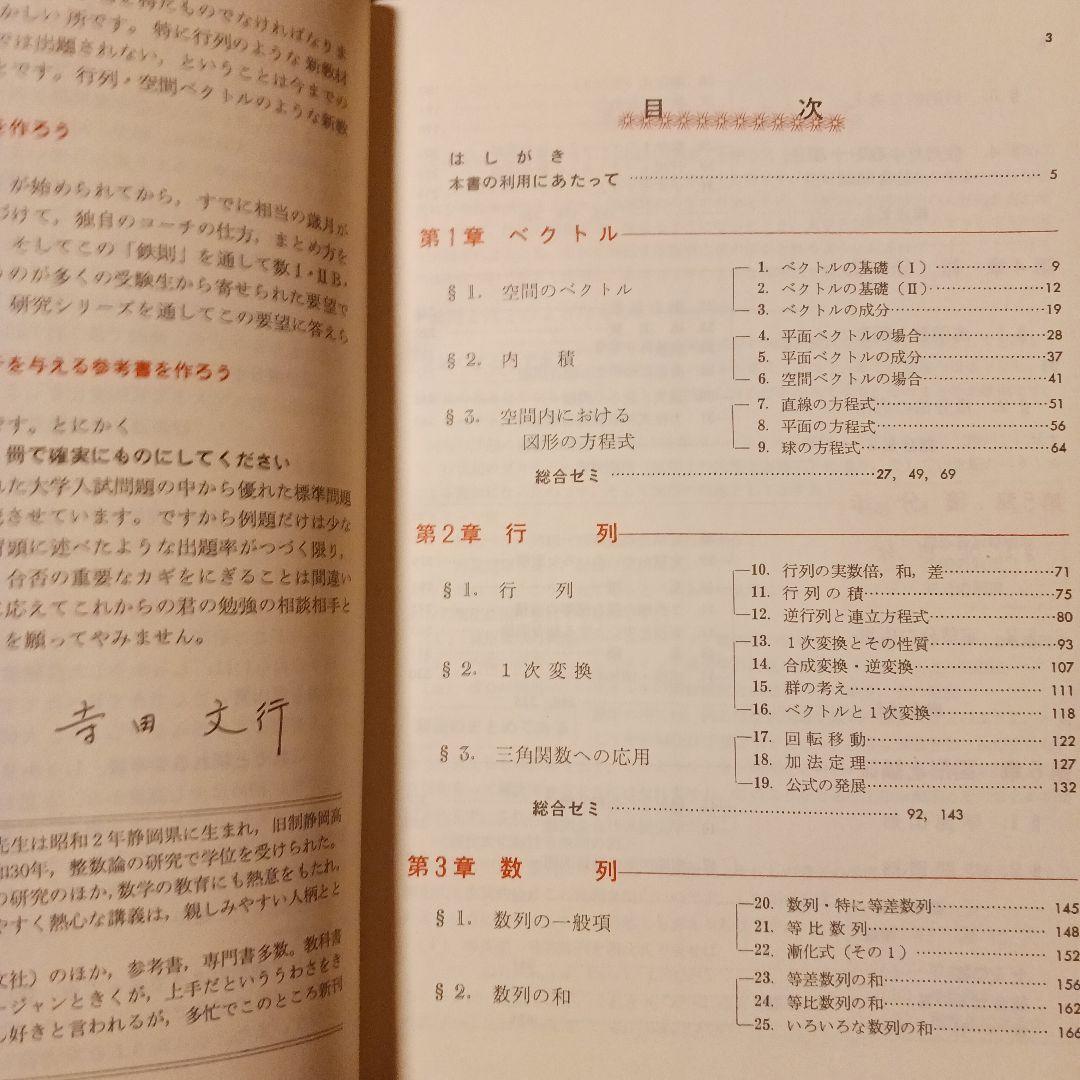 を持たものでなければなりま
かしい所です。特に行列のような新教材
では出題されない，ということは今までの
とです。行列・空間ベクトルのような新数
を作ろう
が始められてから，すでに相当の歳月が
づけて，独自のコーチの仕方，まとめ方を
そしてこの「鉄則」を通して数Ⅰ・ⅡB，
ものが多くの受験生から寄せられた要望で
研究シリーズを通してこの要望に答えら
を与える参考書を作ろう
です。とにかく
冊で確実にものにしてください
れた大学入試問題の中から優れた標準問題
させています。ですから例題だけは少な
冒頭に述べたような出題率がつづく限り，
合否の重要なカギをにぎることは間違い
に応えてこれからの君の勉強の相談相手と
を願ってやみません。
寺田 文行
先生は昭和2年静岡県に生まれ，旧制静岡高
和30年，整数論の研究で学位を受けられた。
の研究のほか，数学の教育にも熱意をもたれ，
やすく熱心な講義は，親しみやすい人柄とと
文社）のほか，参考書，専門書多数。教科書
ージャンときくが，上手だといううわさをき
し好きと言われるが，多忙でこのところ新刊
3
目 次
はしがき
本書の利用にあたって 5
第1章 ベクトル
§1. 空間のベクトル
1. ベクトルの基礎（Ⅰ） 9
2. ベクトルの基礎（Ⅱ） 12
3. ベクトルの成分 19
§2. 内 積
4. 平面ベクトルの場合 28
5. 平面ベクトルの成分 37
6. 空間ベクトルの場合 41
§3. 空間内における
図形の方程式
7. 直線の方程式 51
8. 平面の方程式 56
9. 球の方程式 64
総合ゼミ 27, 49, 69
第2章 行 列
§1. 行 列
10. 行列の実数倍，和，差 71
11. 行列の積 75
12. 逆行列と連立方程式 80
§2. 1次変換
13. 1次変換とその性質 93
14. 合成変換・逆変換 107
15. 群の考え 111
16. ベクトルと1次変換 118
§3. 三角関数への応用
17. 回転移動 122
18. 加法定理 127
19. 公式の発展 132
総合ゼミ 92, 143
第3章 数 列
§1. 数列の一般項
20. 数列・特に等差数列 145
21. 等比数列 148
22. 漸化式（その1） 152
§2. 数列の和
23. 等差数列の和 156
24. 等比数列の和 162
25. いろいろな数列の和 166